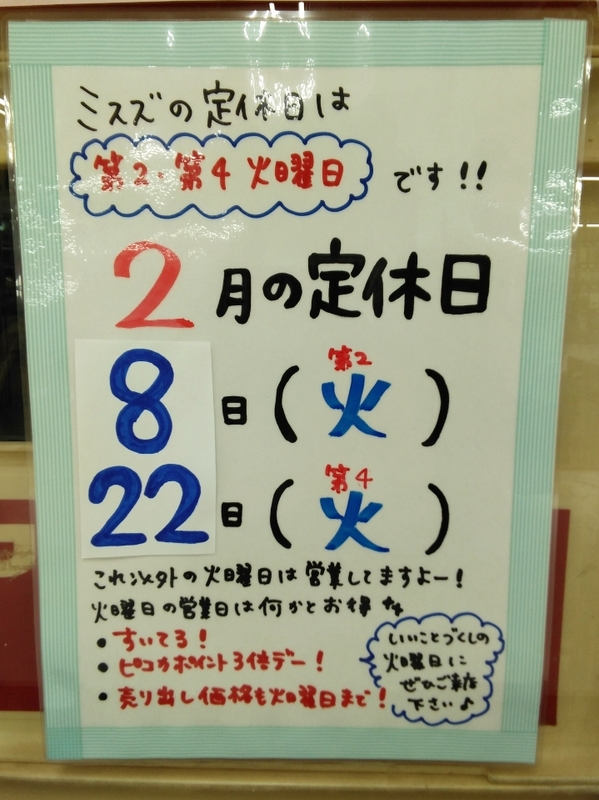 ミスズの定休日は
第2・第4 火曜日 です!!
2月の定休日
8日(第2火)
22日(第4火)
これ以外の火曜日は営業してますよー!
火曜日の営業日は何かとお得
・すいてる!
・ピコカポイント3倍デー!
・売り出し価格も火曜日まで!
いいことづくしの
火曜日に
ぜひご来店
下さい♪